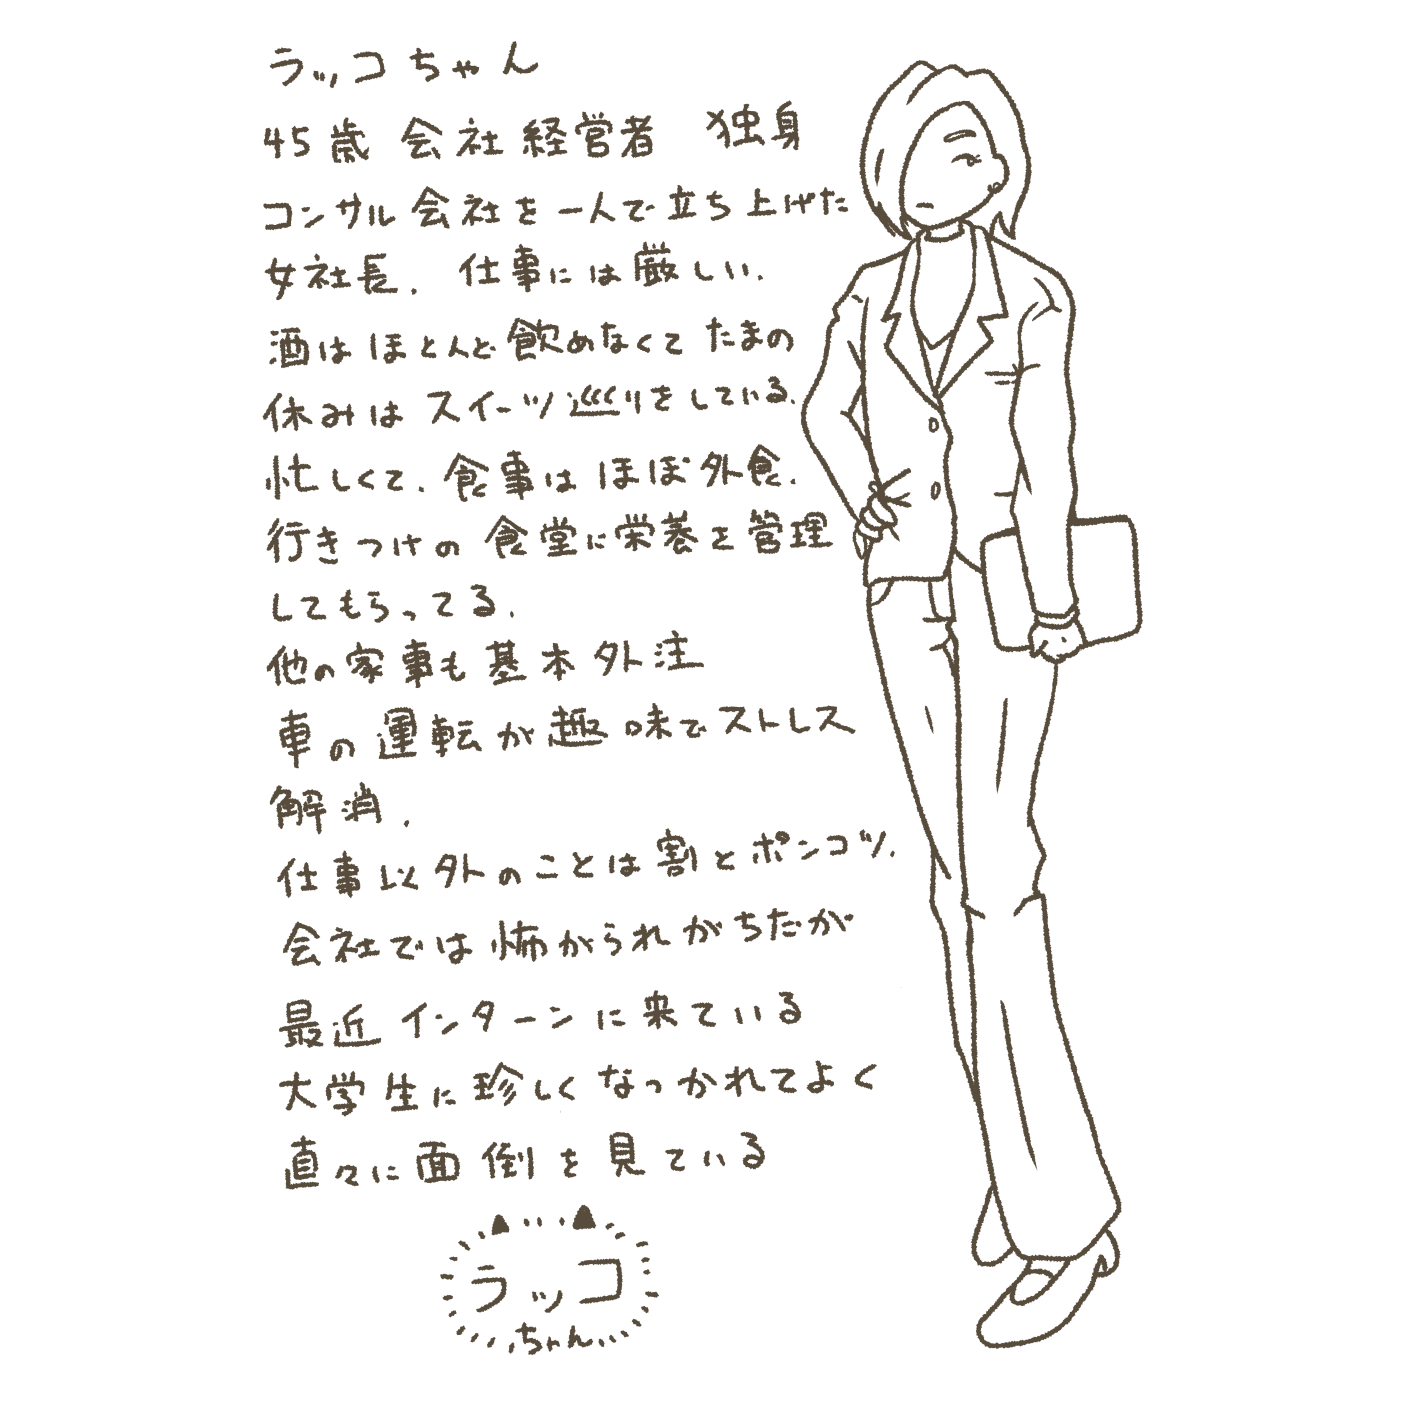 ラッコちゃん
45歳 会社経営者 独身
コンサル会社を一人で立ち上げた
女社長. 仕事には厳しい.
酒はほとんど飲めなくてたまの
休みはスイーツ巡りをしている.
忙しくて. 食事はほぼ外食.
行きつけの食堂に栄養を管理
してもらってる.
他の家事も基本外注
車の運転が趣味でストレス
解消.
仕事以外のことは割とポンコツ.
会社では怖がられがちだが
最近インターンに来ている
大学生に珍しくなつかれてよく
直々に面倒を見ている
ラッコ
ちゃん